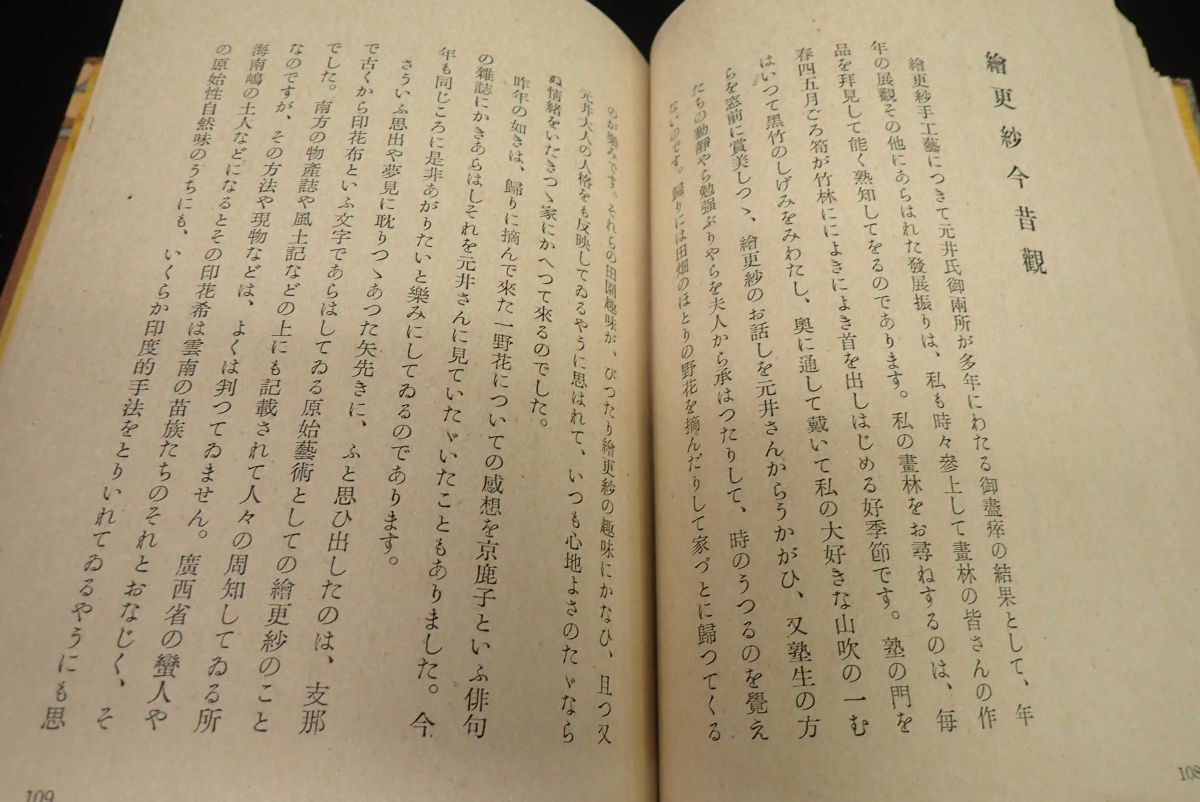 繪更紗今昔觀
繪更紗手工藝につきて元井氏御兩所が多年にわたる御盡瘁の結果として、年
年の展觀その他にあらはれた發展振りは、私も時々參上して畫林の皆さんの作
品を拜見して能く熟知してをるのであります。私の畫林をお尋ねするのは、每
春四五月ごろ筍が竹林ににょきによき首を出しはじめる好季節です。塾の門を
はいつて黑竹のしげみをみわたし、奧に通して戴いて私の大好きな山吹の一む
らを窓前に賞美しつゝ、繪更紗のお話しを元井さんからうかがひ、又塾生の方
たちの動靜やら勉强ぶりやらを夫人から承はつたりして、時のうつるのを覺え
ないのです。歸りには田畑のほとりの野花を摘んだりして家づとに歸つてくる
のが樂みです。それらの田園趣味が、ぴつたり繪更紗の趣味にかなひ、且つ又
元井大人の人格をも反映してゐるやうに思はれて、いつも心地よさのたゞなら
ぬ情緒をいだきつゝ家にかへつて來るのでした。
昨年の如きは、歸りに摘んで來た一野花についての感想を京鹿子といふ俳句
の雜誌にかきあらはしそれを元井さんに見ていたゞいたこともありました。今
年も同じころに是非あがりたいと樂みにしてゐるのであります。
さういふ思出や夢見に耽りつゝあつた矢先きに、ふと思ひ出したのは、支那
で古くから印花布といふ文字であらはしてゐる原始藝術としての繪更紗のこと
でした。南方の物產誌や風土記などの上にも記載されて人々の周知してゐる所
なのですが、その方法や現物などは、よくは判つてゐません。廣西省の蠻人や
海南嶋の土人などになるとその印花希は雲南の苗族たちのそれとおなじく、そ
の原始性自然味のうちにも、いくらか印度的手法をとりいれてゐるやうにも思
108
109